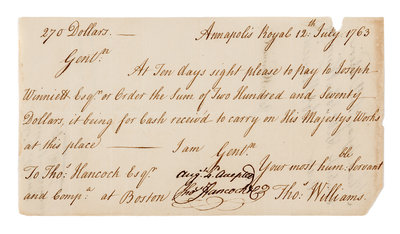 270 Dollars. — Annapolis Royal 12th July 1763
Gentn
At Ten days sight please to pay to Joseph
Winniett Esqr or Order the Sum of Two Hundred and Seventy
Dollars, it being for Cash receivd to carry on His Majestys Works
at this place — I am Gentn
Your most humble Servant
To Thos Hancock Esqr
and Compa at Boston
Augt 2. Accepted
Thos Hancock & Co
Thos Williams.